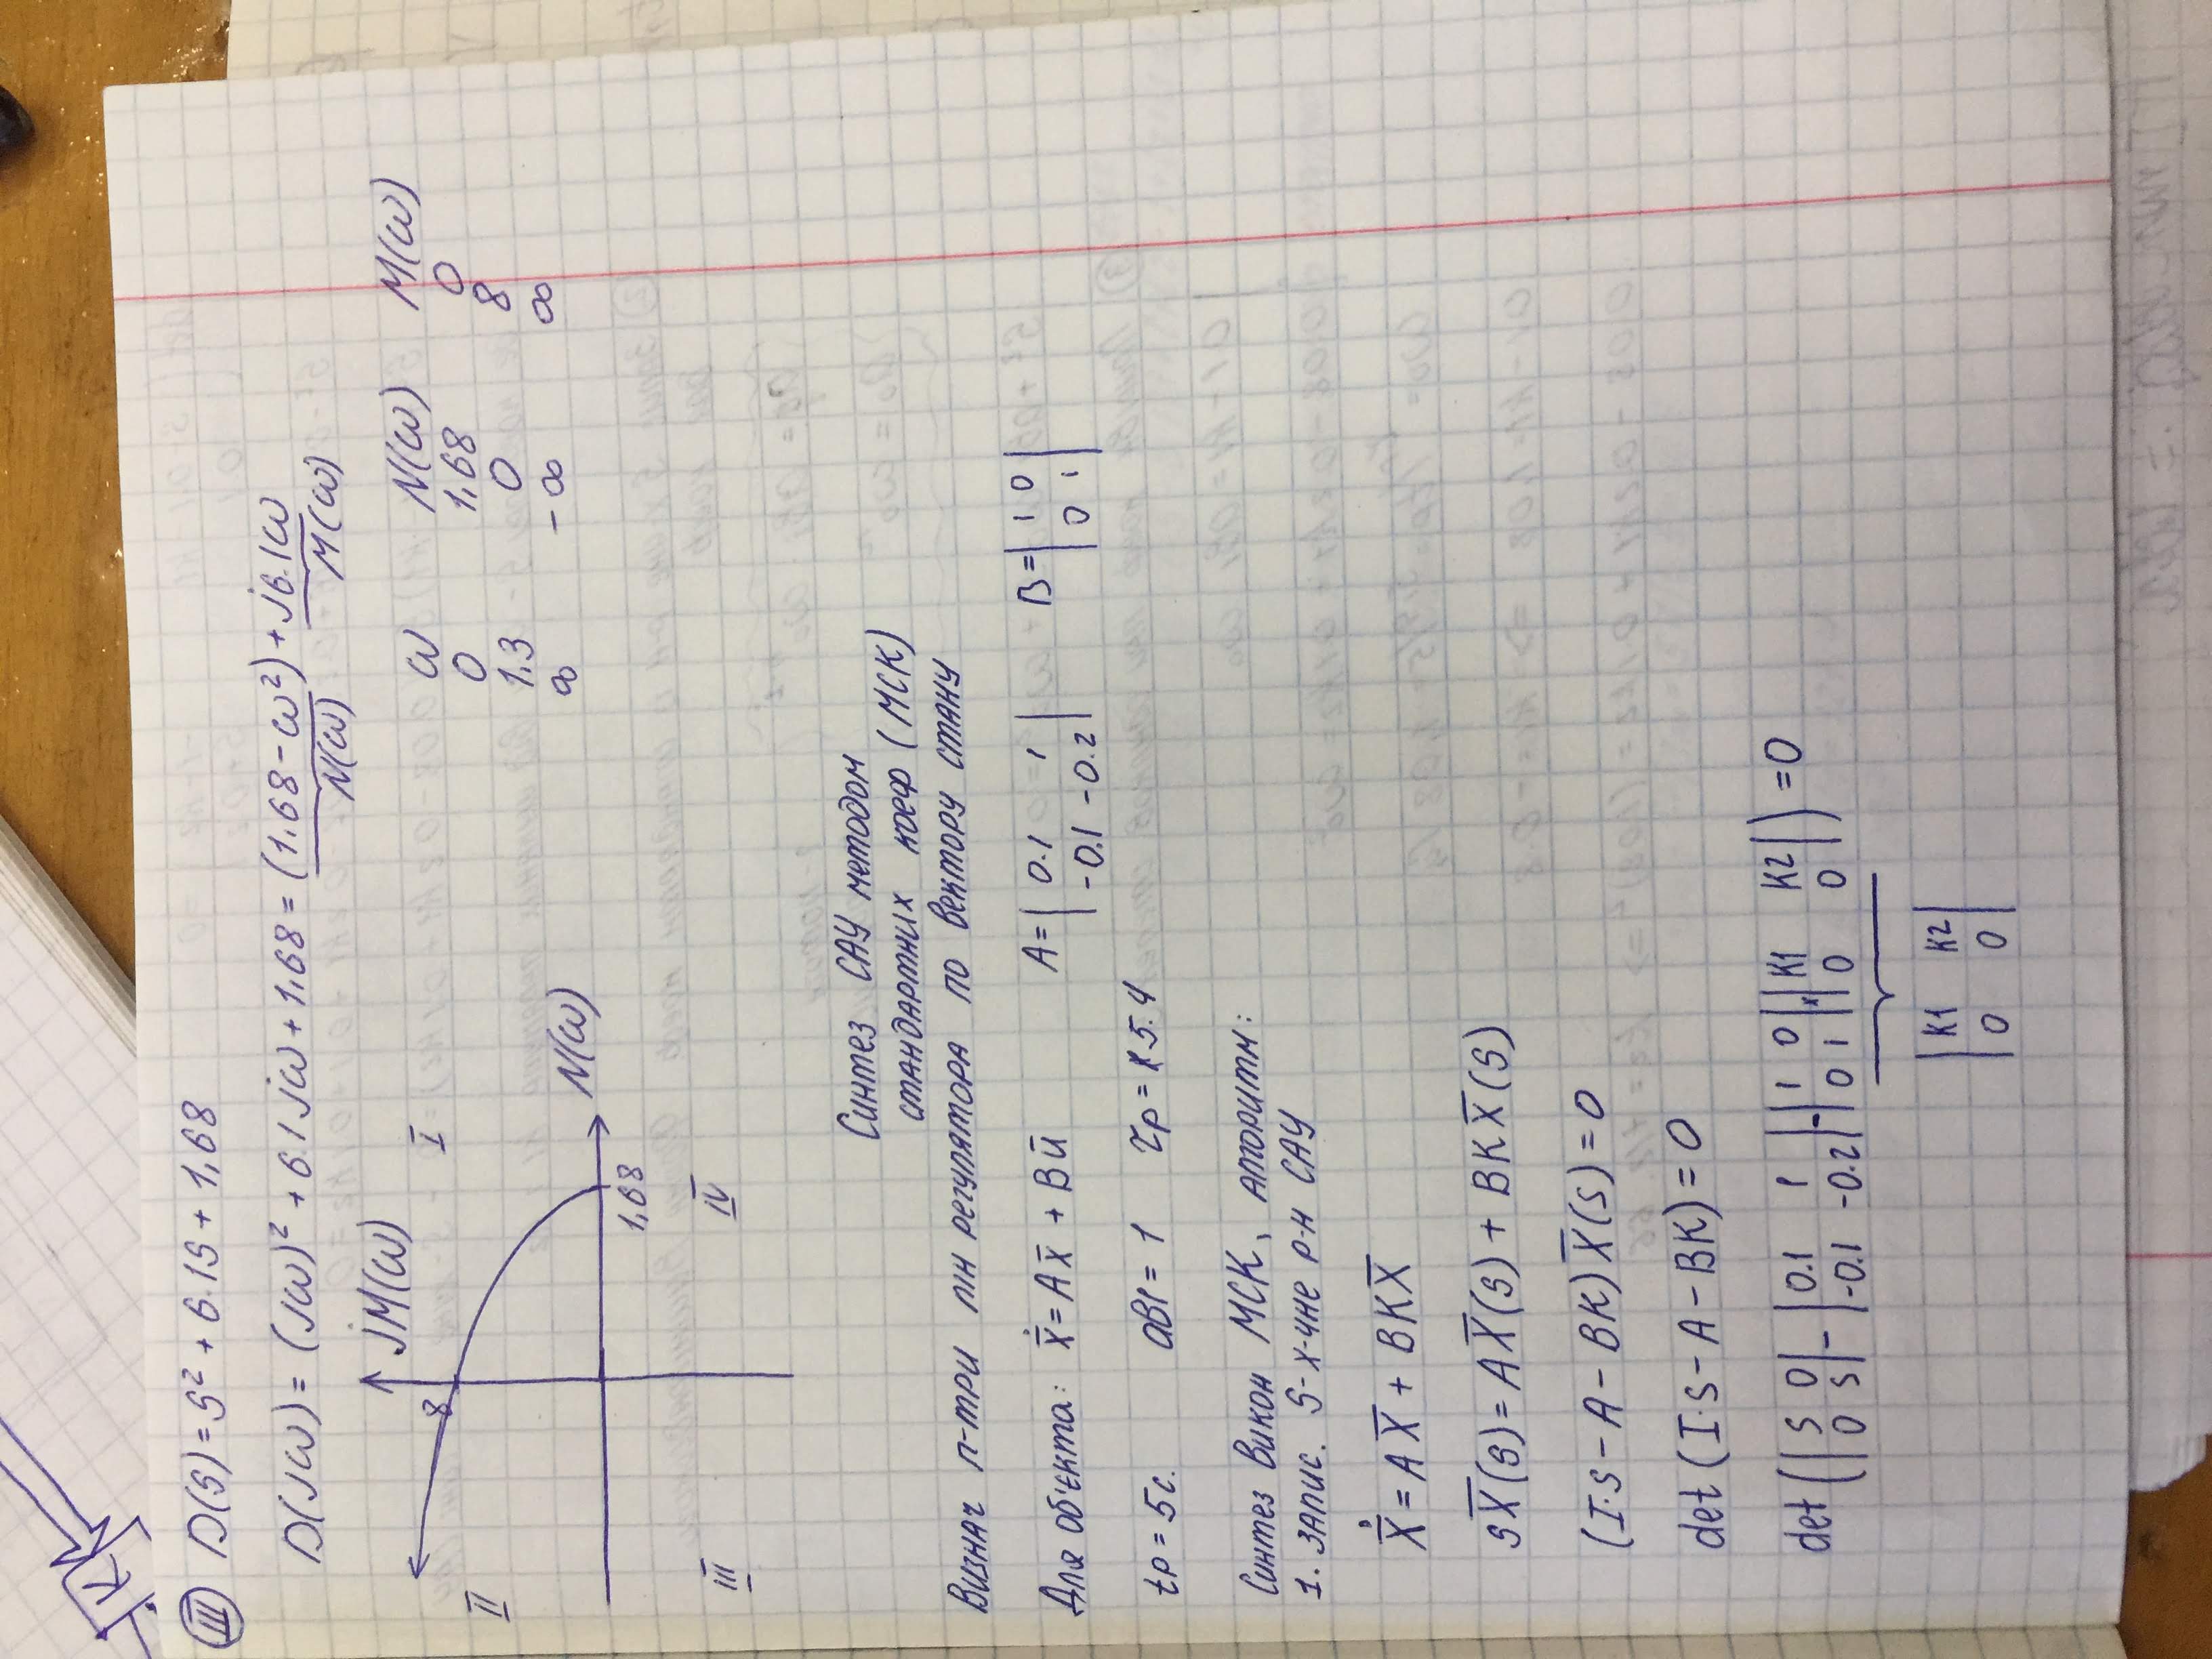 K
III D(s) = s² + 6.1s + 1,68
D(jω) = (jω)² + 6.1jω + 1,68 = (1.68 - ω²) + j6.1ω
N(ω) M(ω)
jM(ω)
8
I
II
N(ω)
1,68
III
IV
ω N(ω) M(ω)
0 1,68 0
1.3 0 8
∞ -∞ ∞
Синтез САУ методом
стандартних коеф (МСК)
Визнач п-три лін регулятора по вектору стану
Для об'єкта: ẋ̄ = Ax̄ + Bū A = | 0.1 1 | B = | 1 0 |
| -0.1 -0.2 | | 0 1 |
tp = 5c. aв1 = 1 τp = 5.4
Синтез викон МСК, алгоритм:
1. запис. S-х-чне р-н САУ
Ẋ̄ = AX̄ + BKX̄
sX̄(s) = AX̄(s) + BKX̄(s)
(I·s - A - BK)X̄(s) = 0
det(I·s - A - BK) = 0
det( | s 0 | - | 0.1 1 | - | 1 0 | · | K1 K2 | ) = 0
| 0 s | | -0.1 -0.2 | | 0 1 | | 0 0 |
| K1 K2 |
| 0 0 |